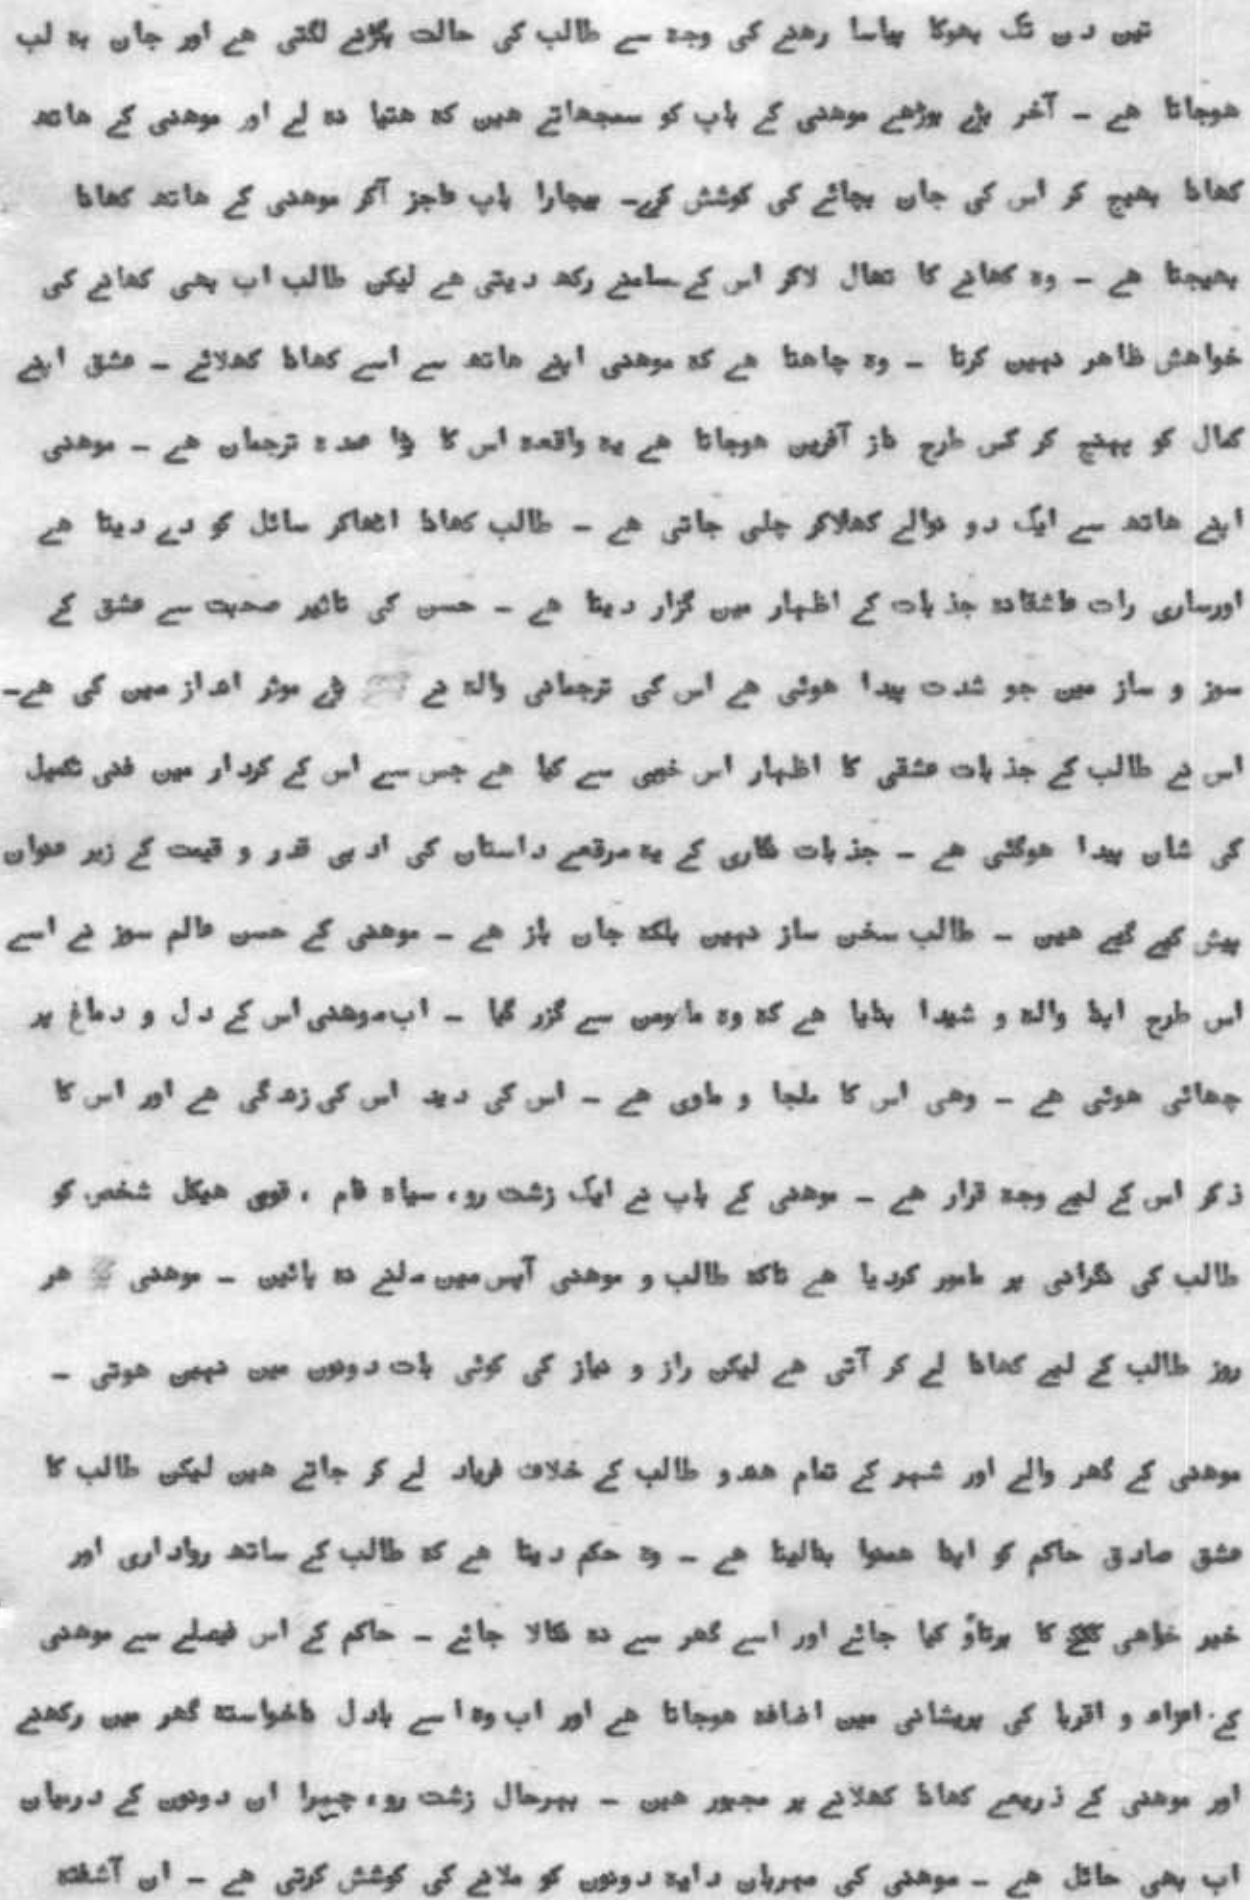 تین دن تک بھوکا پیاسا رھنے کی وجہ سے طالب کی حالت بگڑنے لگتی ھے اور جان بہ لب
ھوجاتا ھے ۔ آخر بڑے بوڑھے موھنی کے باپ کو سمجھاتے ھیں کہ ھتیا نہ لے اور موھنی کے ھاتھ
کھانا بھیج کر اس کی جان بچانے کی کوشش کرے۔ بیچارا باپ عاجز آکر موھنی کے ھاتھ کھانا
بھیجتا ھے ۔ وہ کھانے کا تھال لاکر اس کے سامنے رکھ دیتی ھے لیکن طالب اب بھی کھانے کی
خواھش ظاھر نہیں کرتا ۔ وہ چاھتا ھے کہ موھنی اپنے ھاتھ سے اسے کھانا کھلائے ۔ عشق اپنے
کمال کو پہنچ کر کس طرح ناز آفریں ھوجاتا ھے یہ واقعہ اس کا بڑا عمدہ ترجمان ھے ۔ موھنی
اپنے ھاتھ سے ایک دو نوالے کھلاکر چلی جاتی ھے ۔ طالب کھانا اٹھاکر سائل کو دے دیتا ھے
اورساری رات عاشقانہ جذبات کے اظہار میں گزار دیتا ھے ۔ حسن کی تاثیر صحبت سے عشق کے
سوز و ساز میں جو شدت پیدا ھوئی ھے اس کی ترجمانی والہ نے بڑے موثر انداز میں کی ھے۔
اس نے طالب کے جذبات عشقی کا اظہار اس خوبی سے کیا ھے جس سے اس کے کردار میں فنی تکمیل
کی شان پیدا ھوگئی ھے ۔ جذبات نگاری کے یہ مرقعے داستان کی ادبی قدر و قیمت کے زیر عنوان
پیش کیے گیے ھیں ۔ طالب سخن ساز نہیں بلکہ جان باز ھے ۔ موھنی کے حسن عالم سوز نے اسے
اس طرح اپنا والہ و شیدا بنایا ھے کہ وہ ماومن سے گزر گیا ۔ اب موھنی اس کے دل و دماغ پر
چھائی ھوئی ھے ۔ وھی اس کا ملجا و ماوی ھے ۔ اس کی دید اس کی زندگی ھے اور اس کا
ذکر اس کے لیے وجہ قرار ھے ۔ موھنی کے باپ نے ایک زشت رو، سیاہ فام ، قوی ھیکل شخص کو
طالب کی نگرانی پر مامور کردیا ھے تاکہ طالب و موھنی آپس میں ملنے نہ پائیں ۔ موھنی ھر
روز طالب کے لیے کھانا لے کر آتی ھے لیکن راز و نیاز کی کوئی بات دونوں میں نہیں ھوتی ۔
موھنی کے گھر والے اور شہر کے تمام ھندو طالب کے خلاف فریاد لے کر جاتے ھیں لیکن طالب کا
عشق صادق حاکم کو اپنا ھمنوا بنالیتا ھے ۔ وہ حکم دیتا ھے کہ طالب کے ساتھ رواداری اور
خیر خواھی کا برتاؤ کیا جائے اور اسے گھر سے نہ نکالا جائے ۔ حاکم کے اس فیصلے سے موھنی
کے اعزاء و اقربا کی پریشانی میں اضافہ ھوجاتا ھے اور اب وہ اسے بادل ناخواستہ گھر میں رکھنے
اور موھنی کے ذریعے کھانا کھلانے پر مجبور ھیں ۔ بہرحال زشت رو، چیرا ان دونوں کے درمیان
اب بھی حائل ھے ۔ موھنی کی مہربان دایہ دونوں کو ملانے کی کوشش کرتی ھے ۔ ان آشفتہ